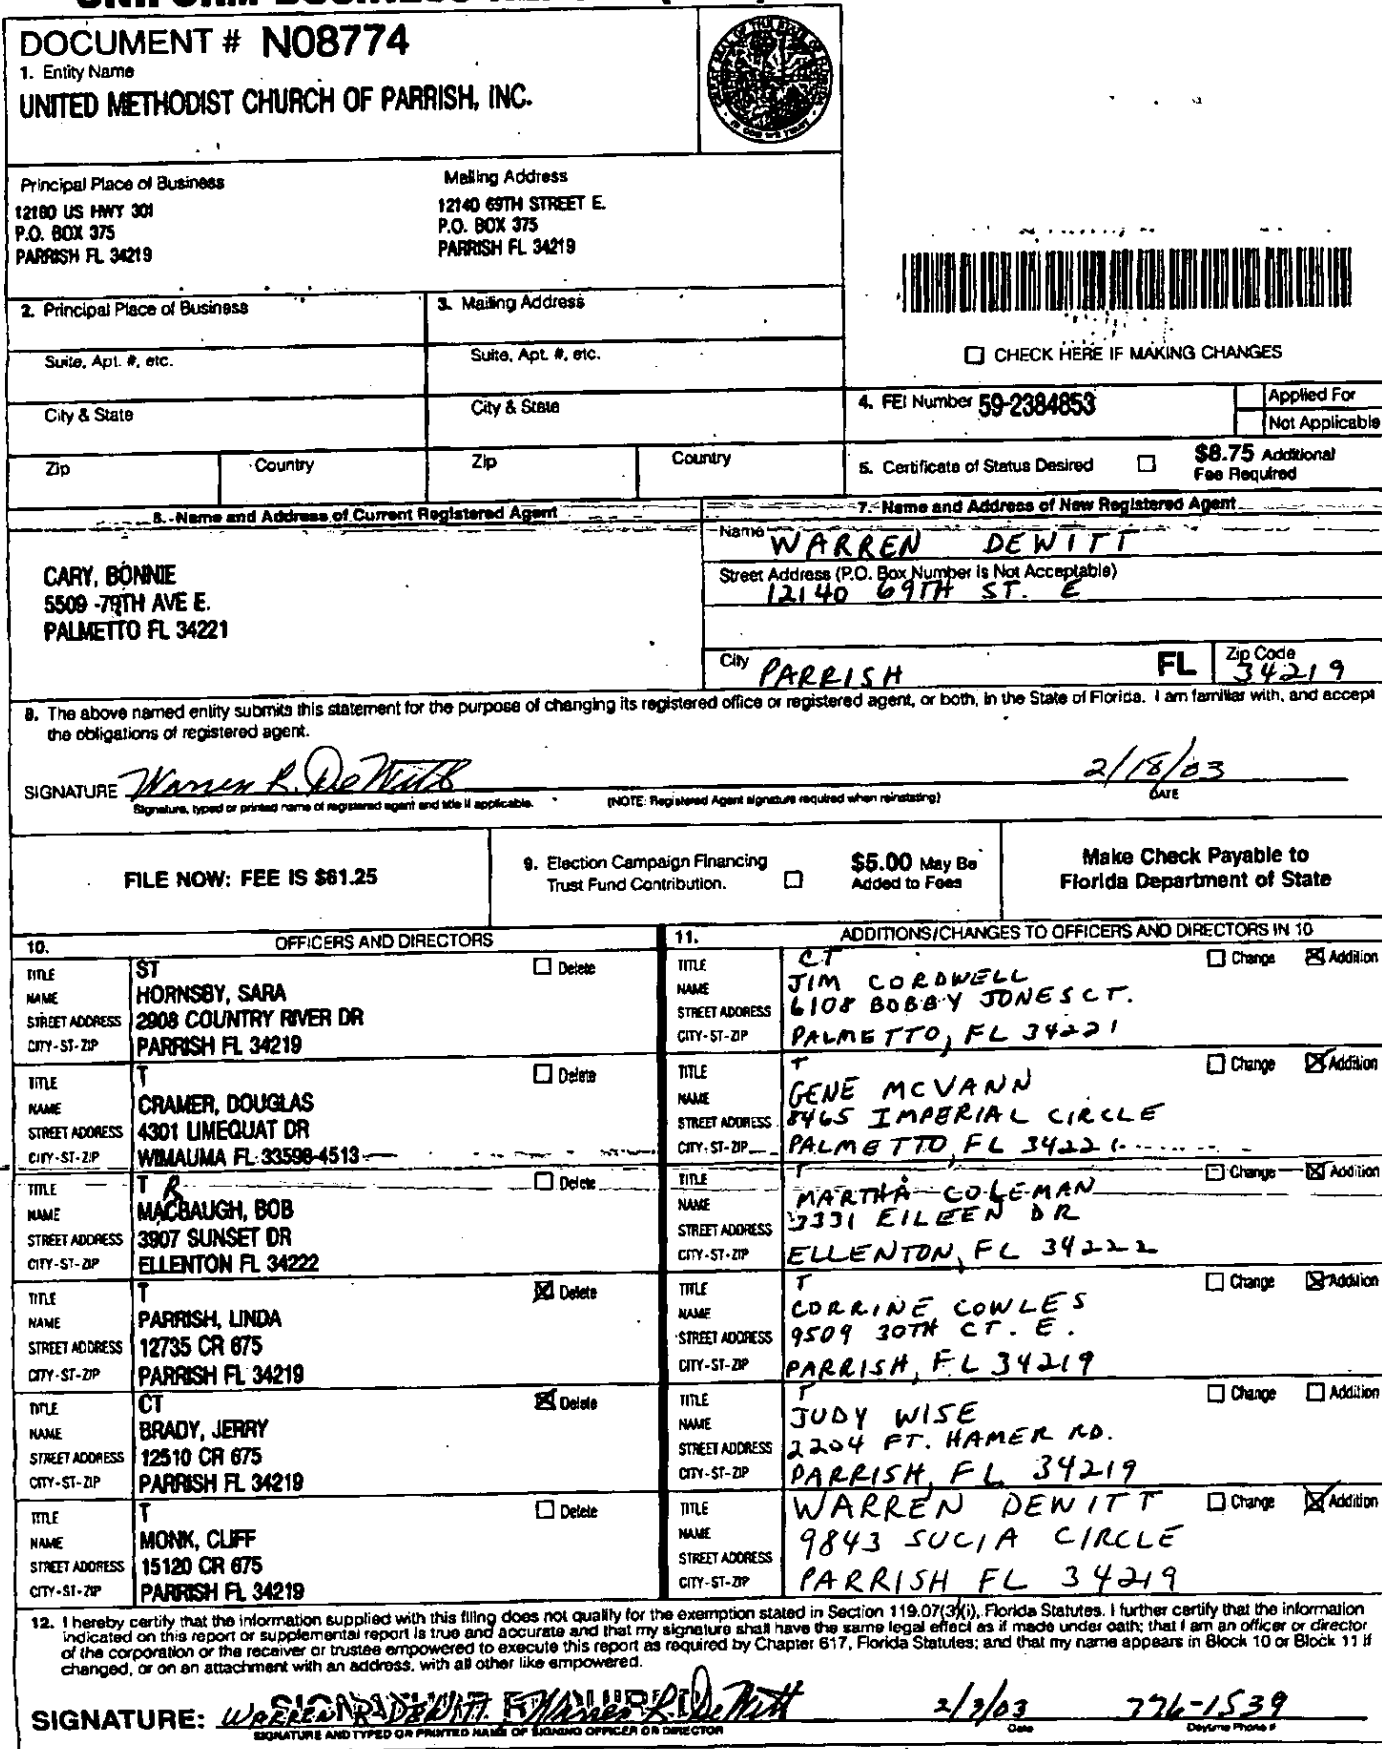 DOCUMENT # N08774
1. Entity Name
UNITED METHODIST CHURCH OF PARRISH, INC.
Principal Place of Business
12180 US HWY 301
P.O. BOX 375
PARRISH FL 34219
Mailing Address
12140 69TH STREET E.
P.O. BOX 375
PARRISH FL 34219
2. Principal Place of Business
3. Mailing Address
Suite, Apt. #, etc.
Suite, Apt. #, etc.
City & State
City & State
Zip
Country
Zip
Country
CHECK HERE IF MAKING CHANGES
4. FEI Number 59-2384853
Applied For
Not Applicable
5. Certificate of Status Desired
$8.75 Additional
Fee Required
6. Name and Address of Current Registered Agent
CARY, BONNIE
5509 -79TH AVE E.
PALMETTO FL 34221
7. Name and Address of New Registered Agent
Name WARREN DEWITT
Street Address (P.O. Box Number is Not Acceptable)
12140 69TH ST. E
City PARRISH FL Zip Code 34219
8. The above named entity submits this statement for the purpose of changing its registered office or registered agent, or both, in the State of Florida. I am familiar with, and accept
the obligations of registered agent.
SIGNATURE Warren R. DeWitt 2/18/03
Signature, typed or printed name of registered agent and title if applicable. (NOTE: Registered Agent signature required when reinstating) DATE
FILE NOW: FEE IS $61.25
9. Election Campaign Financing
Trust Fund Contribution.
$5.00 May Be
Added to Fees
Make Check Payable to
Florida Department of State
10. OFFICERS AND DIRECTORS
TITLE ST Delete
NAME HORNSBY, SARA
STREET ADDRESS 2908 COUNTRY RIVER DR
CITY-ST-ZIP PARRISH FL 34219
TITLE T Delete
NAME CRAMER, DOUGLAS
STREET ADDRESS 4301 LIMEQUAT DR
CITY-ST-ZIP WIMAUMA FL 33598-4513
TITLE T R Delete
NAME MACBAUGH, BOB
STREET ADDRESS 3907 SUNSET DR
CITY-ST-ZIP ELLENTON FL 34222
TITLE T Delete
NAME PARRISH, LINDA
STREET ADDRESS 12735 CR 675
CITY-ST-ZIP PARRISH FL 34219
TITLE CT Delete
NAME BRADY, JERRY
STREET ADDRESS 12510 CR 675
CITY-ST-ZIP PARRISH FL 34219
TITLE T Delete
NAME MONK, CLIFF
STREET ADDRESS 15120 CR 675
CITY-ST-ZIP PARRISH FL 34219
11. ADDITIONS/CHANGES TO OFFICERS AND DIRECTORS IN 10
TITLE CT Change Addition
NAME JIM CORDWELL
STREET ADDRESS 6108 BOBBY JONES CT.
CITY-ST-ZIP PALMETTO, FL 34221
TITLE T Change Addition
NAME GENE MCVANN
STREET ADDRESS 8465 IMPERIAL CIRCLE
CITY-ST-ZIP PALMETTO, FL 34221
TITLE T Change Addition
NAME MARTHA COLEMAN
STREET ADDRESS 3331 EILEEN DR
CITY-ST-ZIP ELLENTON, FL 34222
TITLE T Change Addition
NAME CORRINE COWLES
STREET ADDRESS 9509 30TH CT. E.
CITY-ST-ZIP PARRISH, FL 34219
TITLE T Change Addition
NAME JUDY WISE
STREET ADDRESS 2204 FT. HAMER RD.
CITY-ST-ZIP PARRISH, FL 34219
TITLE WARREN DEWITT Change Addition
NAME 9843 SUCIA CIRCLE
STREET ADDRESS
CITY-ST-ZIP PARRISH FL 34219
12. I hereby certify that the information supplied with this filing does not qualify for the exemption stated in Section 119.07(3)(i), Florida Statutes. I further certify that the information
indicated on this report or supplemental report is true and accurate and that my signature shall have the same legal effect as if made under oath; that I am an officer or director
of the corporation or the receiver or trustee empowered to execute this report as required by Chapter 617, Florida Statutes; and that my name appears in Block 10 or Block 11 if
changed, or on an attachment with an address, with all other like empowered.
SIGNATURE: WARREN R. DEWITT Warren R. DeWitt 2/3/03 776-1539
SIGNATURE AND TYPED OR PRINTED NAME OF SIGNING OFFICER OR DIRECTOR Date Daytime Phone #